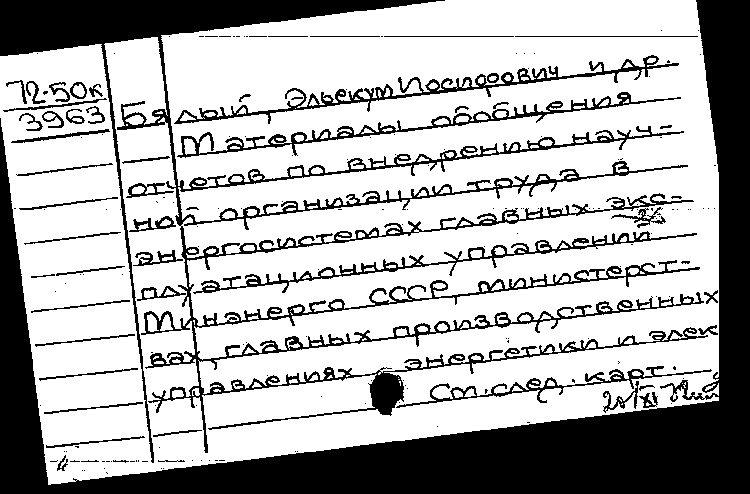 72-50к
3963
Бялый, Эльекум Иосифович и др.
Материалы обобщения
отчетов по внедрению науч-
ной организации труда в
энергосистемах главных экс-
плуатационных управлений
Минэнерго СССР, министерст-
вах, главных производственных
управлениях энергетики и элек
См. след. карт.